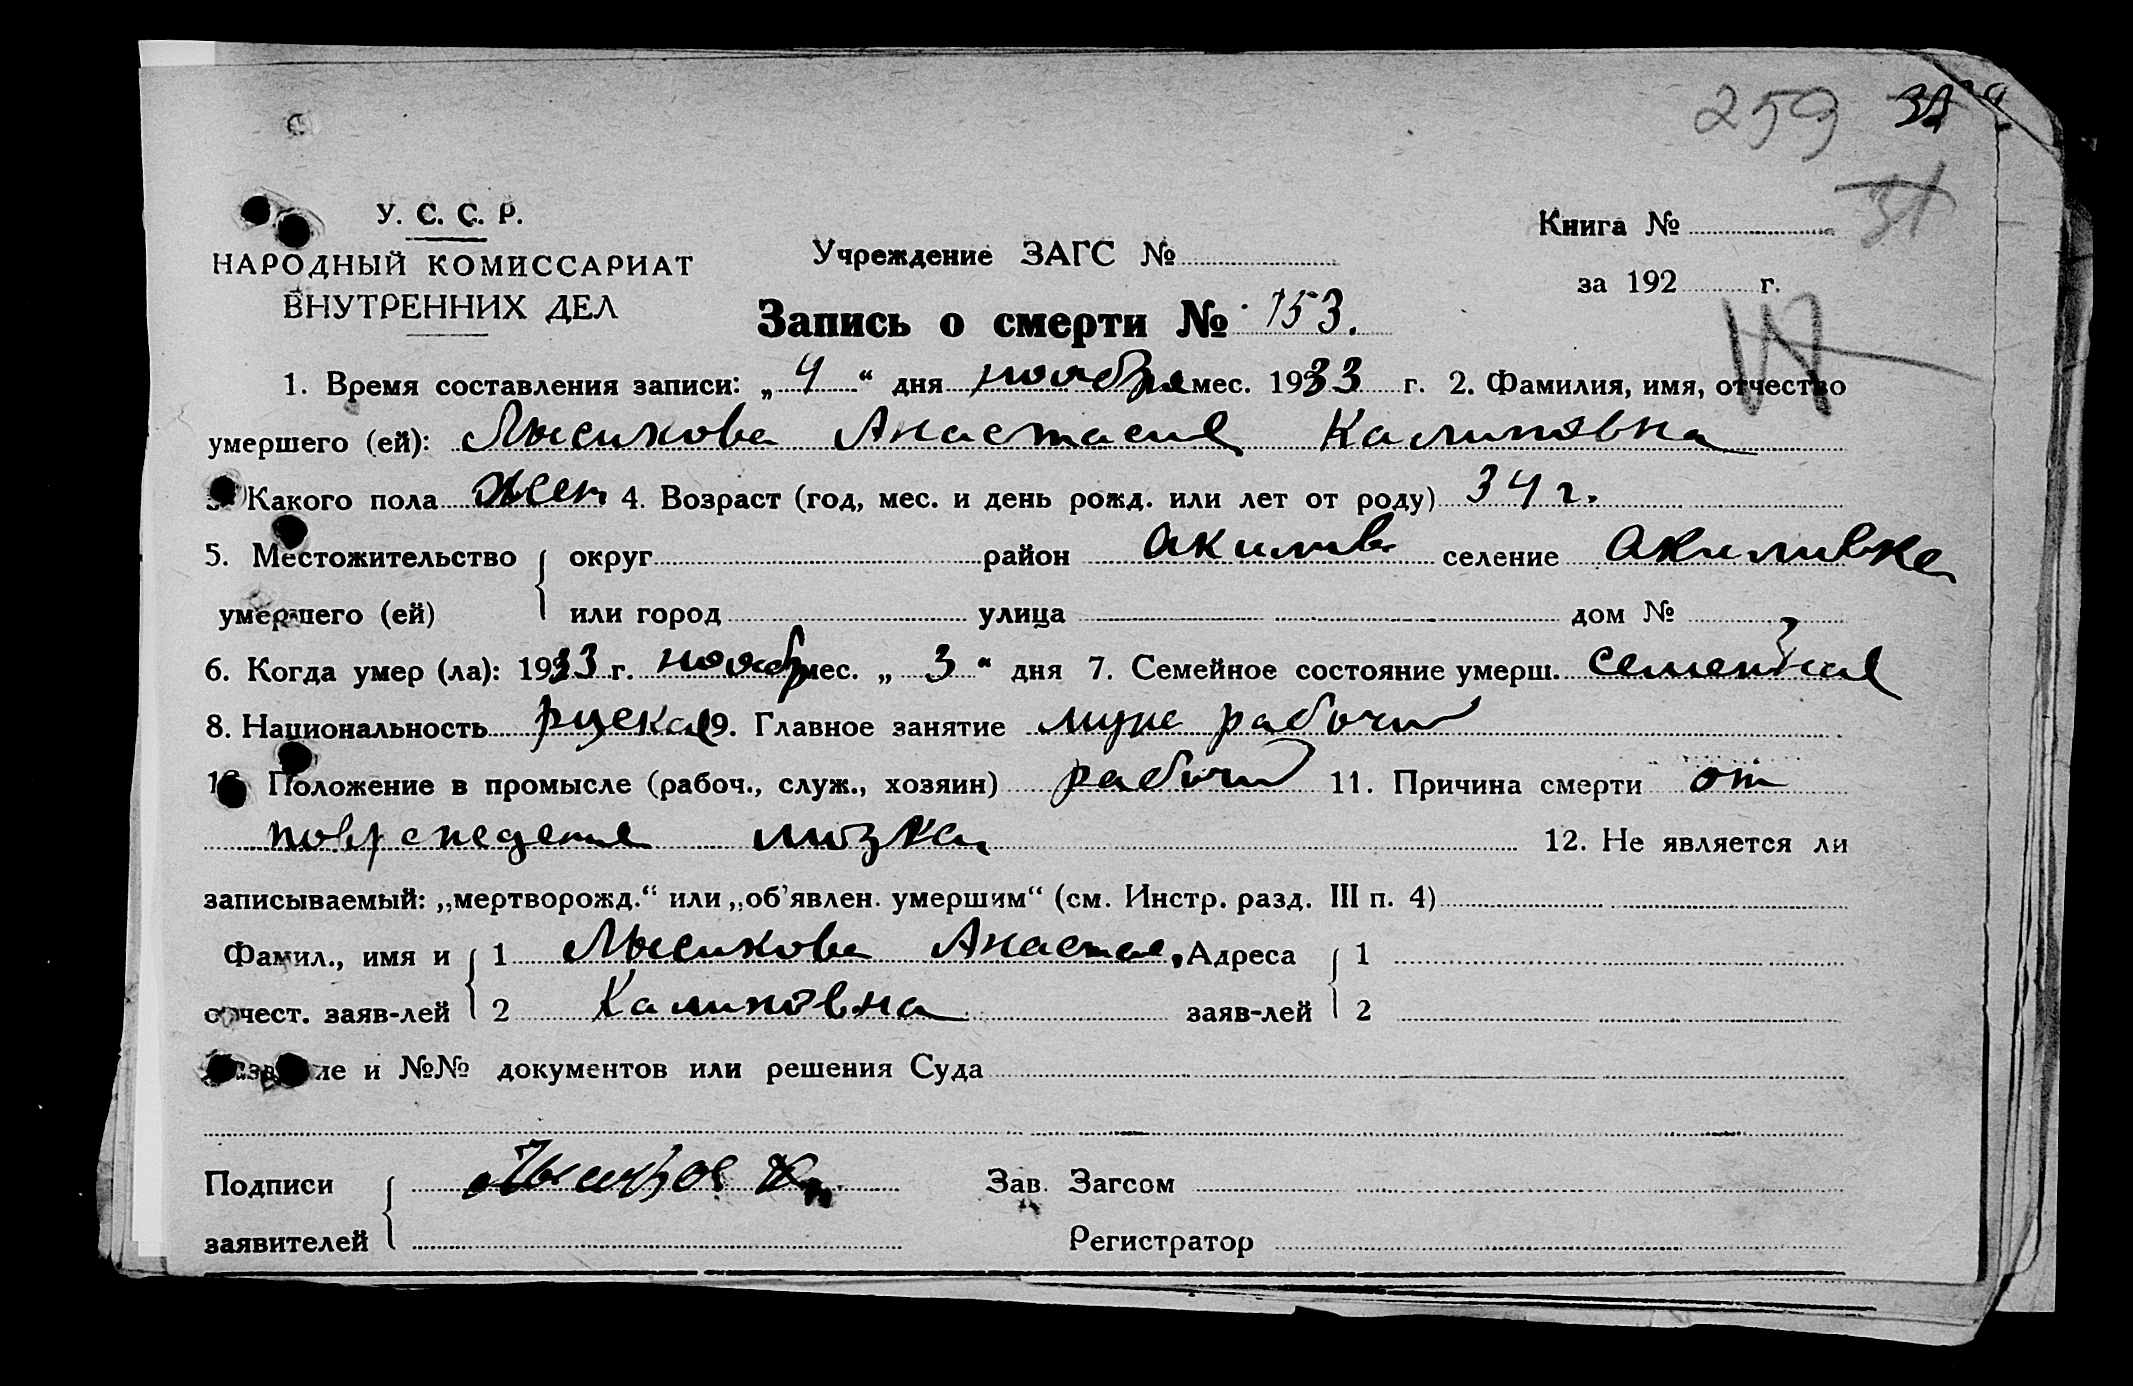 259
31
У. С. С. Р.
НАРОДНЫЙ КОМИССАРИАТ
ВНУТРЕННИХ ДЕЛ
Учреждение ЗАГС №
Книга №
за 192 г.
Запись о смерти № 153.
1. Время составления записи: „4“ дня ноября мес. 1933 г. 2. Фамилия, имя, отчество
умершего (ей): Лысикова Анастасия Калиновна
Какого пола жен 4. Возраст (год, мес. и день рожд. или лет от роду) 34 г.
5. Местожительство округ район Акимов селение Акимовка
умершего (ей) или город улица дом №
6. Когда умер (ла): 1933 г. нояб мес. „3“ дня 7. Семейное состояние умерш. семейная
8. Национальность руская 9. Главное занятие муж рабочий
10 Положение в промысле (рабоч., служ., хозяин) рабочий 11. Причина смерти от
повреждения мозга 12. Не является ли
записываемый: „мертворожд.“ или „об'явлен. умершим“ (см. Инстр. разд. III п. 4)
Фамил., имя и 1 Лысикова Анастасия, Адреса 1
отчест. заяв-лей 2 Калиновна заяв-лей 2
Название и №№ документов или решения Суда
Подписи Зав. Загсом
заявителей Регистратор